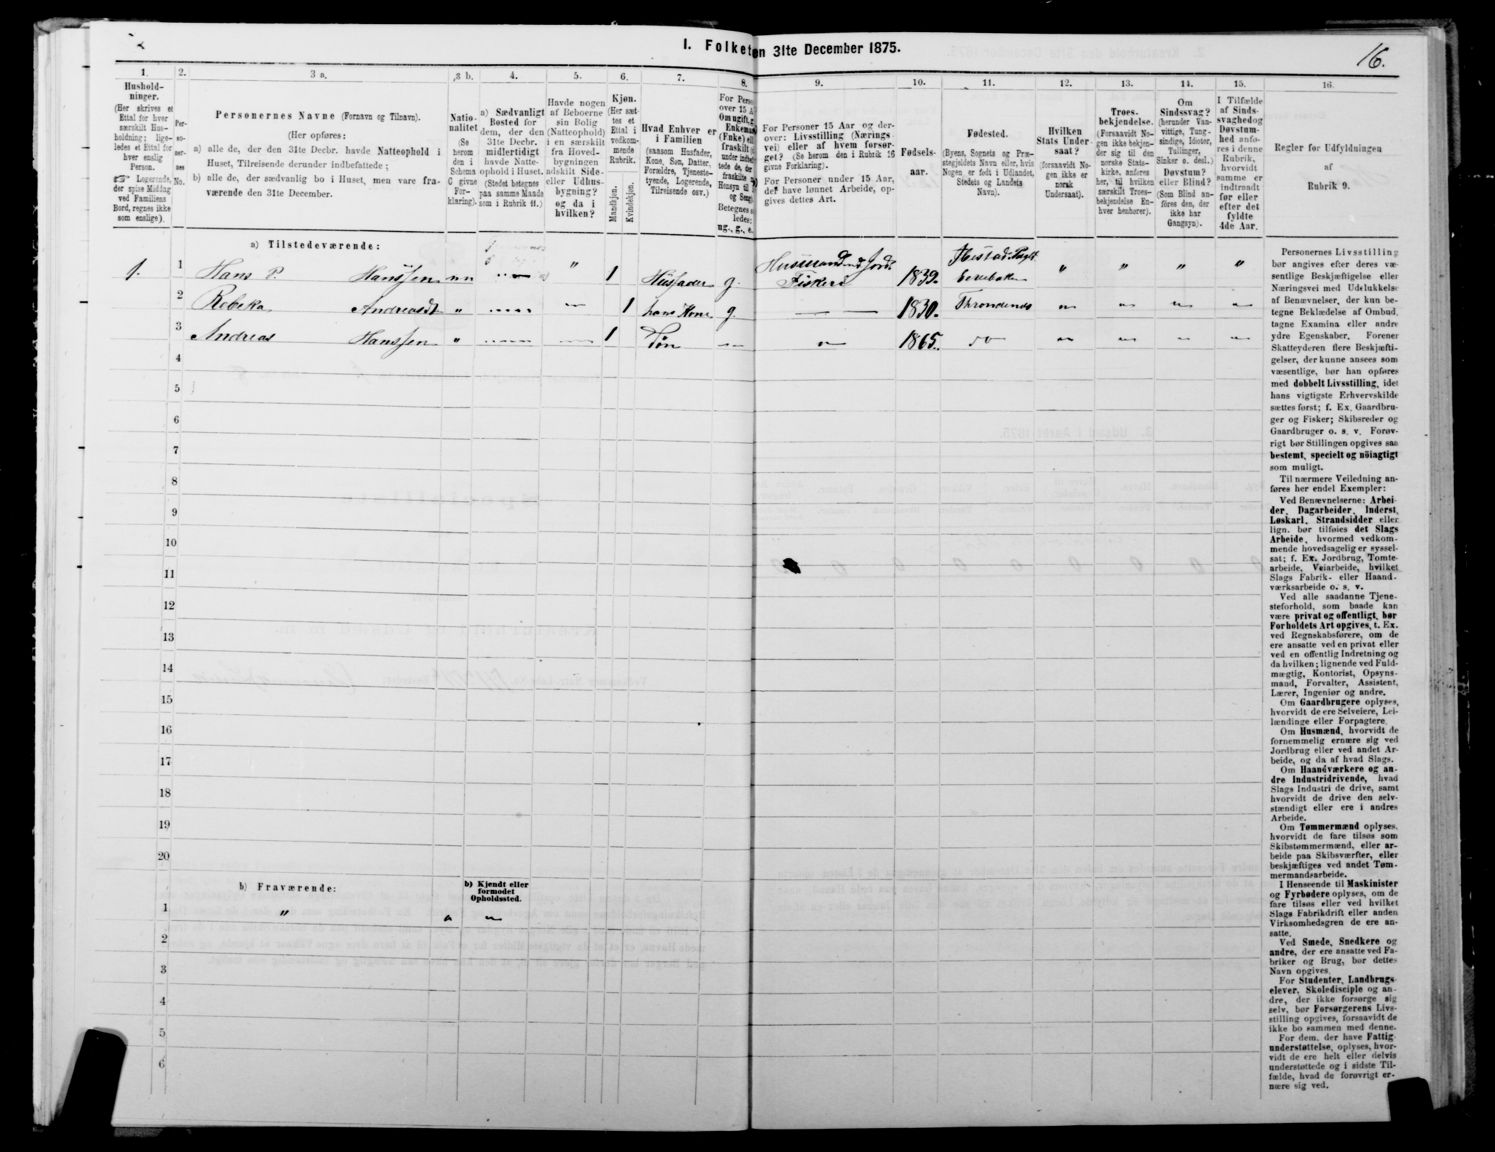 16.
I. Folketen 31te December 1875.
1.
Hushold-
ninger.
(Her skrives et
Ettal for hver
særskilt Hus-
holdning; lige-
ledes et Ettal for
hver enslig
Person.
Logerende,
der spise Middag
ved Familiens
Bord, regnes ikke
som enslige).
2.
Per-
so-
ner-
nes
No.
3 a.
Personernes Navne (Fornavn og Tilnavn).
(Her opføres:
a) alle de, der den 31te Decbr. havde Natteophold i
Huset, Tilreisende derunder indbefattede;
b) alle de, der sædvanlig bo i Huset, men vare fra-
værende den 31te December.
3 b.
Natio-
nalitet
(Se
herom
den i
Schema
C givne
For-
klaring).
4.
a) Sædvanligt
Bosted for
dem, der den
31te Decbr.
midlertidigt
havde Natte-
ophold i Huset.
(Stedet betegnes
paa samme Maade
som i Rubrik 11.)
5.
Havde nogen
af Beboerne
sin Bolig
(Natteophold)
i en særskilt
fra Hoved-
bygningen
adskilt Side-
eller Udhus-
bygning?
og da i
hvilken?
6.
Kjøn.
(Her sæt-
tes et
Ettal i
vedkom-
mende
Rubrik.
Mandkjøn.
Kvindekjøn.
7.
Hvad Enhver er
i Familien
(saasom Husfader,
Kone, Søn, Datter,
Forældre, Tjeneste-
tyende, Logerende,
Tilreisende osv.)
8.
For Perso
over 15 A
Om ugift, g
Enkeman
(Enke) ell
fraskilt
Betegnes s
ledes:
ug., g., e.
9.
For Personer 15 Aar og der-
over: Livsstilling (Nærings-
vei) eller af hvem forsør-
get? (Se herom den i Rubrik 16
givne Forklaring).
For Personer under 15 Aar,
der have lønnet Arbeide, op-
gives dettes Art.
10.
Fødsels-
aar.
11.
Fødested.
(Byens, Sognets og Præ-
stegjeldets Navn eller, hvis
Nogen er født i Udlandet,
Stedets og Landets
Navn).
12.
Hvilken
Stats Under-
saat?
(forsaavidt No-
gen ikke er
norsk
Undersaat).
13.
Troes-
bekjendelse.
(Forsaavidt No-
gen ikke bekjen-
der sig til den
norske Stats-
kirke, anføres
her, til hvilken
særskilt Troes-
bekjendelse En-
hver henhører).
14.
Om
Sindssvag?
(herunder Van-
vittige, Tung-
sindige, Idioter,
Tullinger,
Sinker o. desl.)
Døvstum?
eller Blind?
(Som Blind an-
føres den, der
ikke har
Gangsyn).
15.
I Tilfælde
af Sinds-
svaghed og
Døvstum-
hed anfø-
res i denne
Rubrik,
hvorvidt
samme er
indtraadt
før eller
efter det
fyldte
4de Aar.
16.
Regler før Udfyldningen
af
Rubrik 9.
a) Tilstedeværende:
1. 1 Hans P. Hanssen nn " 1 Husfader g. Husmand m Jord Fisker 1832.
2 Rebeka Andreasdt " 1 hans Kone g. 1830. Throndenæs
3 Andreas Hanssen " 1 Søn 1865. do
4
5
6
7
8
9
10
11
12
13
14
15
16
17
18
19
20
b) Fraværende:
b) Kjendt eller
formodet
Opholdssted.
1 "
2
3
4
5
6
Personernes Livsstilling
bør angives efter deres væ-
sentlige Beskjæftigelse eller
Næringsvei med Udelukkelse
af Benævnelser, der kun be-
tegne Beklædelse af Ombud,
tagne Examina eller andre
ydre Egenskaber. Forener
Skatteyderen flere Beskjæfti-
gelser, der kunne ansees som
væsentlige, bør han opføres
med dobbelt Livsstilling, idet
hans vigtigste Erhvervskilde
sættes først; f. Ex. Gaardbru-
ger og Fisker; Skibsreder og
Gaardbruger o. s. v. Forøv-
rigt bør Stillingen opgives saa
bestemt, specielt og nöiagtigt
som muligt.
Til nærmere Veiledning an-
føres her endel Exempler:
Ved Benævnelserne: Arbei-
der, Dagarbeider, Inderst,
Løskarl, Strandsidder eller
lign. bør tilføies det Slags
Arbeide, hvormed vedkom-
mende hovedsagelig er syssel-
sat; f. Ex. Jordbrug, Tomte-
arbeide, Veiarbeide, hvilket
Slags Fabrik- eller Haand-
værksarbeide o. s. v.
Ved alle saadanne Tjene-
steforhold, som baade kan
være privat og offentligt, bør
Forholdets Art opgives, t. Ex.
ved Regnskabsførere, om de
ere ansatte ved en privat eller
ved en offentlig Indretning og
da hvilken; lignende ved Fuld-
mægtig, Kontorist, Opsyns-
mand, Forvalter, Assistent,
Lærer, Ingeniør og andre.
Om Gaardbrugere oplyses,
hvorvidt de ere Selveiere, Lei-
lændinge eller Forpagtere.
Om Husmænd, hvorvidt de
fornemmelig ernære sig ved
Jordbrug eller ved andet Ar-
beide, og da af hvad Slags.
Om Haandværkere og an-
dre Industridrivende, hvad
Slags Industri de drive, samt
hvorvidt de drive den selv-
stændigt eller ere i andres
Arbeide.
Om Tømmermænd oplyses,
hvorvidt de fare tilsøs som
Skibstømmermænd, eller ar-
beide paa Skibsværfter, eller
beskjæftiges ved andet Tøm-
mermandsarbeide.
I Henseende til Maskinister
og Fyrbødere oplyses, om de
fare tilsøs eller ved hvilket
Slags Fabrikdrift eller anden
Virksomhedsgren de ere an-
satte.
Ved Smede, Snedkere og
andre, der ere ansatte ved Fa-
briker og Brug, bør dettes
Navn opgives.
For Studenter, Landbrugs-
elever, Skoledisciple og an-
dre, der ikke forsørge sig
selv, bør Forsørgerens Livs-
stilling opgives, forsaavidt de
ikke bo sammen med denne.
For dem, der have Fattig-
understøttelse, oplyses, hvor-
vidt de ere helt eller delvis
understøttede og i sidste Til-
fælde, hvad de forøvrigt er-
nære sig ved.